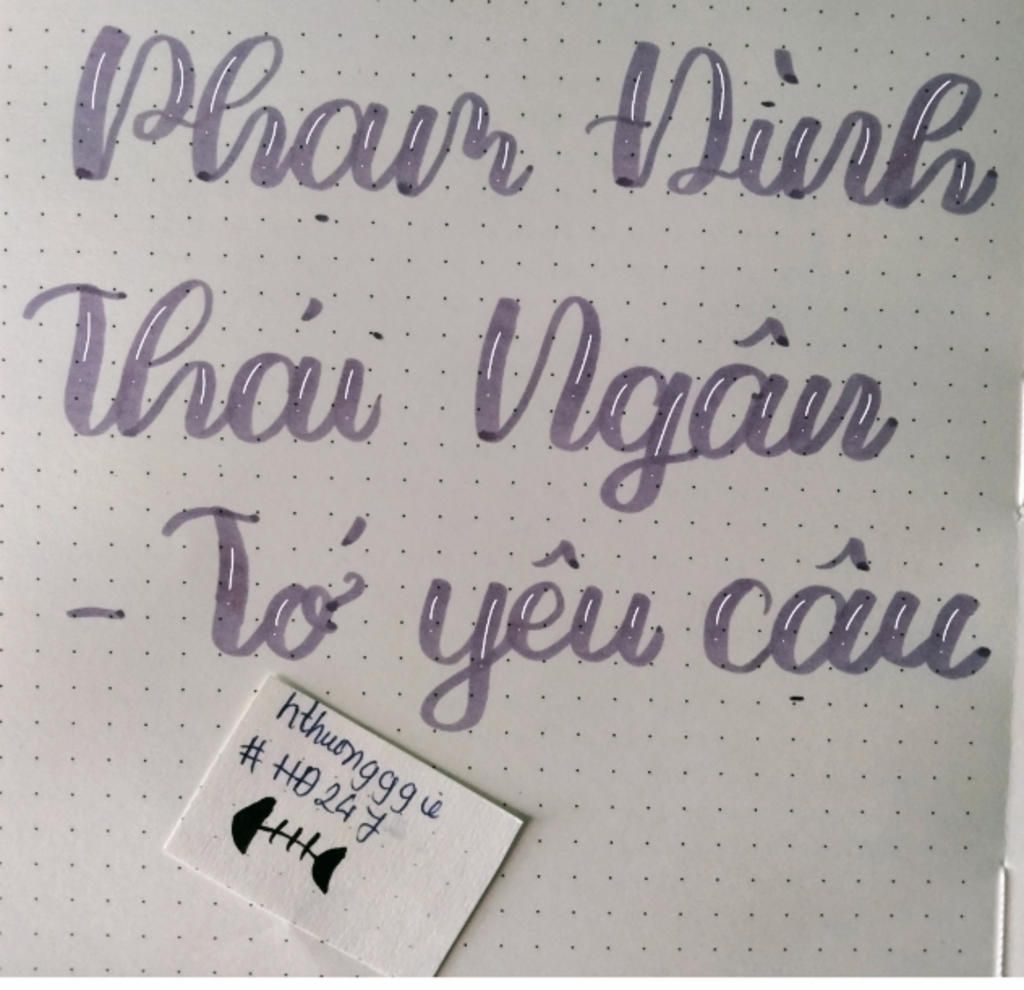 Phạm Đình
Thái Ngân
- Tớ yêu cậu
hthuongggie
#HĐ247